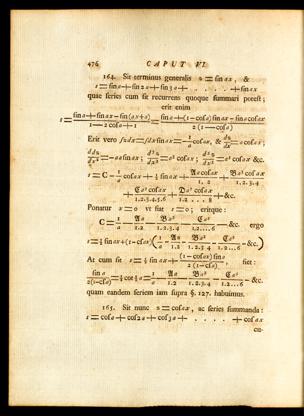 476 CAPUT VI.
164. Sit terminus generalis z = sin ax, &
s = sin a + sin 2a + sin 3a + . . . . + sin ax
quae series cum sit recurrens quoque summari potest;
erit enim
s = (sin a + sin ax − sin (ax + a)) / (1 − 2 cos a + 1) = (sin a + (1 − cos a) sin ax − sin a cos ax) / (2 (1 − cos a))
Erit vero ∫z dx = ∫dx sin ax = − 1/a cos ax, & dz/dx = a cos ax;
ddz/dx² = − aa sin ax; d³z/dx³ = − a³ cos ax; d⁵z/dx⁵ = a⁵ cos ax &c.
s = C − 1/a cos ax + ½ sin ax + A a cos ax / 1.2 + B a³ cos ax / 1.2.3.4
+ C a⁵ cos ax / 1.2.3.4.5.6 + D a⁷ cos ax / 1.2 . . . 8 + &c.
Ponatur x = 0 vt fiat s = 0; eritque:
C = 1/a − A a / 1.2 − B a³ / 1.2.3.4 − C a⁵ / 1.2....6 − &c. ergo
s = ½ sin ax + (1 − cos ax) (1/a − A a / 1.2 − B a³ / 1.2.3.4 − C a⁵ / 1.2...6 − &c.)
At cum sit s = ½ sin ax + (1 − cos ax) sin a / 2 (1 − cos a), fiet:
sin a / 2(1 − cos a) = ½ cot ½ a = 1/a − A a / 1.2 − B a³ / 1.2.3.4 − C a⁵ / 1.2...6 − &c.
quam eandem seriem iam supra §. 127. habuimus.
165. Sit nunc z = cos ax, ac series summanda:
s = cos a + cos 2a + cos 3a + . . . . + cos ax
cu-